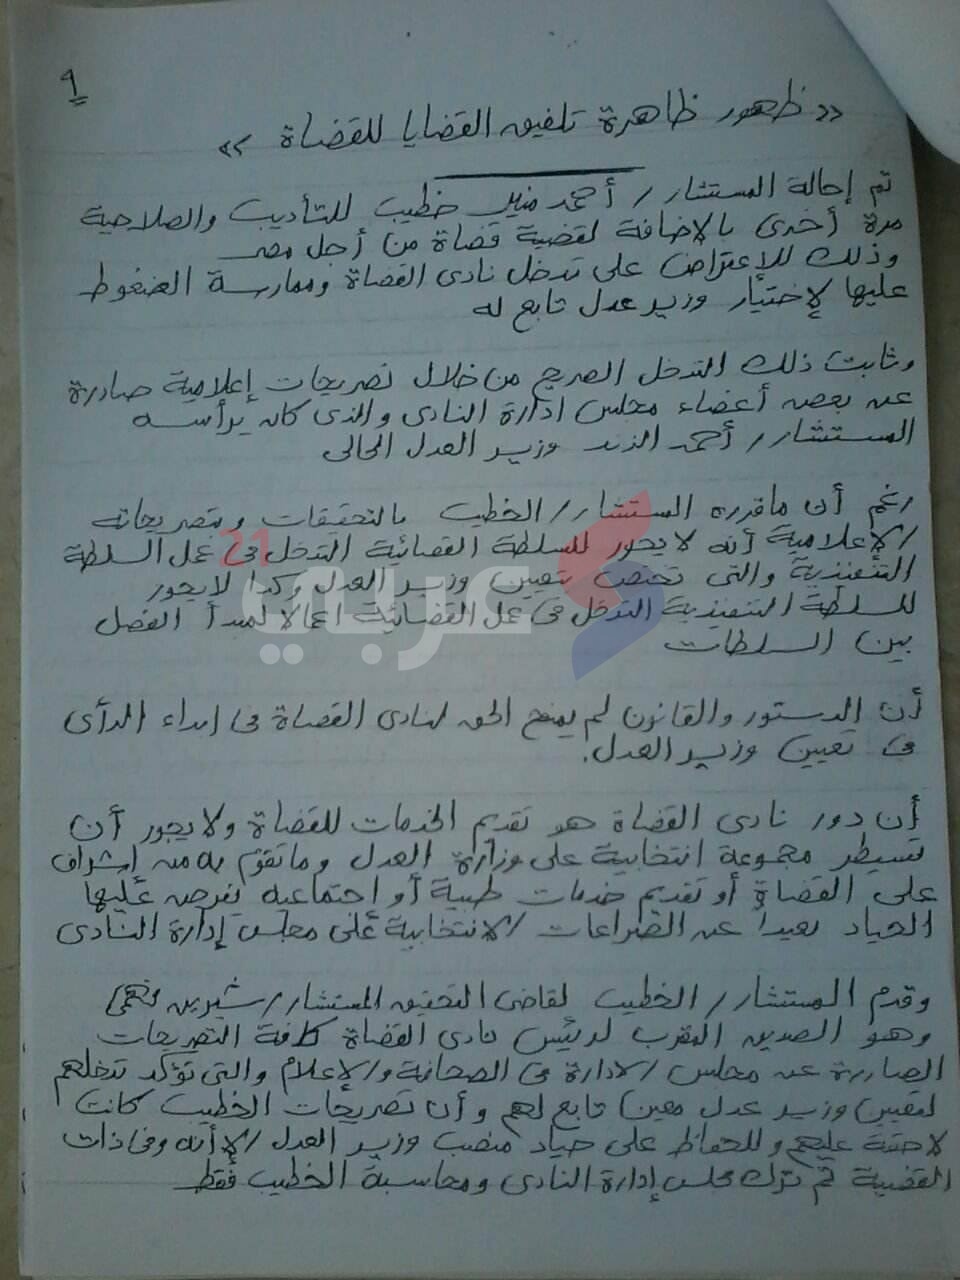 ٩
<< ظهور ظاهرة تلفيق القضايا للقضاة >>
تم إحالة المستشار / أحمد منير خطيب للتأديب والصلاحية
مرة أخرى بالإضافة لقضية قضاة من أجل مصر
وذلك للإعتراض على تدخل نادى القضاة وممارسة الضغوط
عليها لإختيار وزير عدل تابع له
وثابت ذلك التدخل الصريح من خلال تصريحات إعلامية صادرة
عن بعض أعضاء مجلس ادارة النادى والذى كان يرأسه
المستشار / أحمد الزند وزير العدل الحالى
رغم أن ماقرره المستشار / الخطيب بالتحقيقات وبتصريحاته
الإعلامية أنه لا يجوز للسلطة القضائية التدخل فى عمل السلطة
التنفيذية والتى تختص بتعيين وزير العدل وكذا لايجوز
للسلطة التنفيذية التدخل فى عمل القضائية اعمالا لمبدأ الفصل
بين السلطات
أن الدستور والقانون لم يمنح الحق لنادى القضاة فى ابداء الرأى
فى تعيين وزير العدل.
أن دور نادى القضاة هو تقديم الخدمات للقضاة ولا يجوز أن
تسيطر مجموعة انتخابية على وزارة العدل وما تقوم به من إشراف
على القضاة أو تقديم خدمات طبية أو اجتماعية يفرض عليها
الحياد بعيداً عن الصراعات الانتخابية على مجلس إدارة النادى
وقدم المستشار / الخطيب لقاضى التحقيق المستشار / شيرين فهمى
وهو الصديق المقرب لرئيس نادى القضاة كافة التصريحات
الصادرة عن مجلس الادارة فى الصحافة والإعلام والتى تؤكد تدخلهم
لتعيين وزير عدل معين تابع لهم وأن تصريحات الخطيب كانت
لاحقة عليهم وللحفاظ على حياد منصب وزير العدل إلا أنه وفى ذات
القضية تم ترك مجلس إدارة النادى ومحاسبة الخطيب فقط
عربي
21